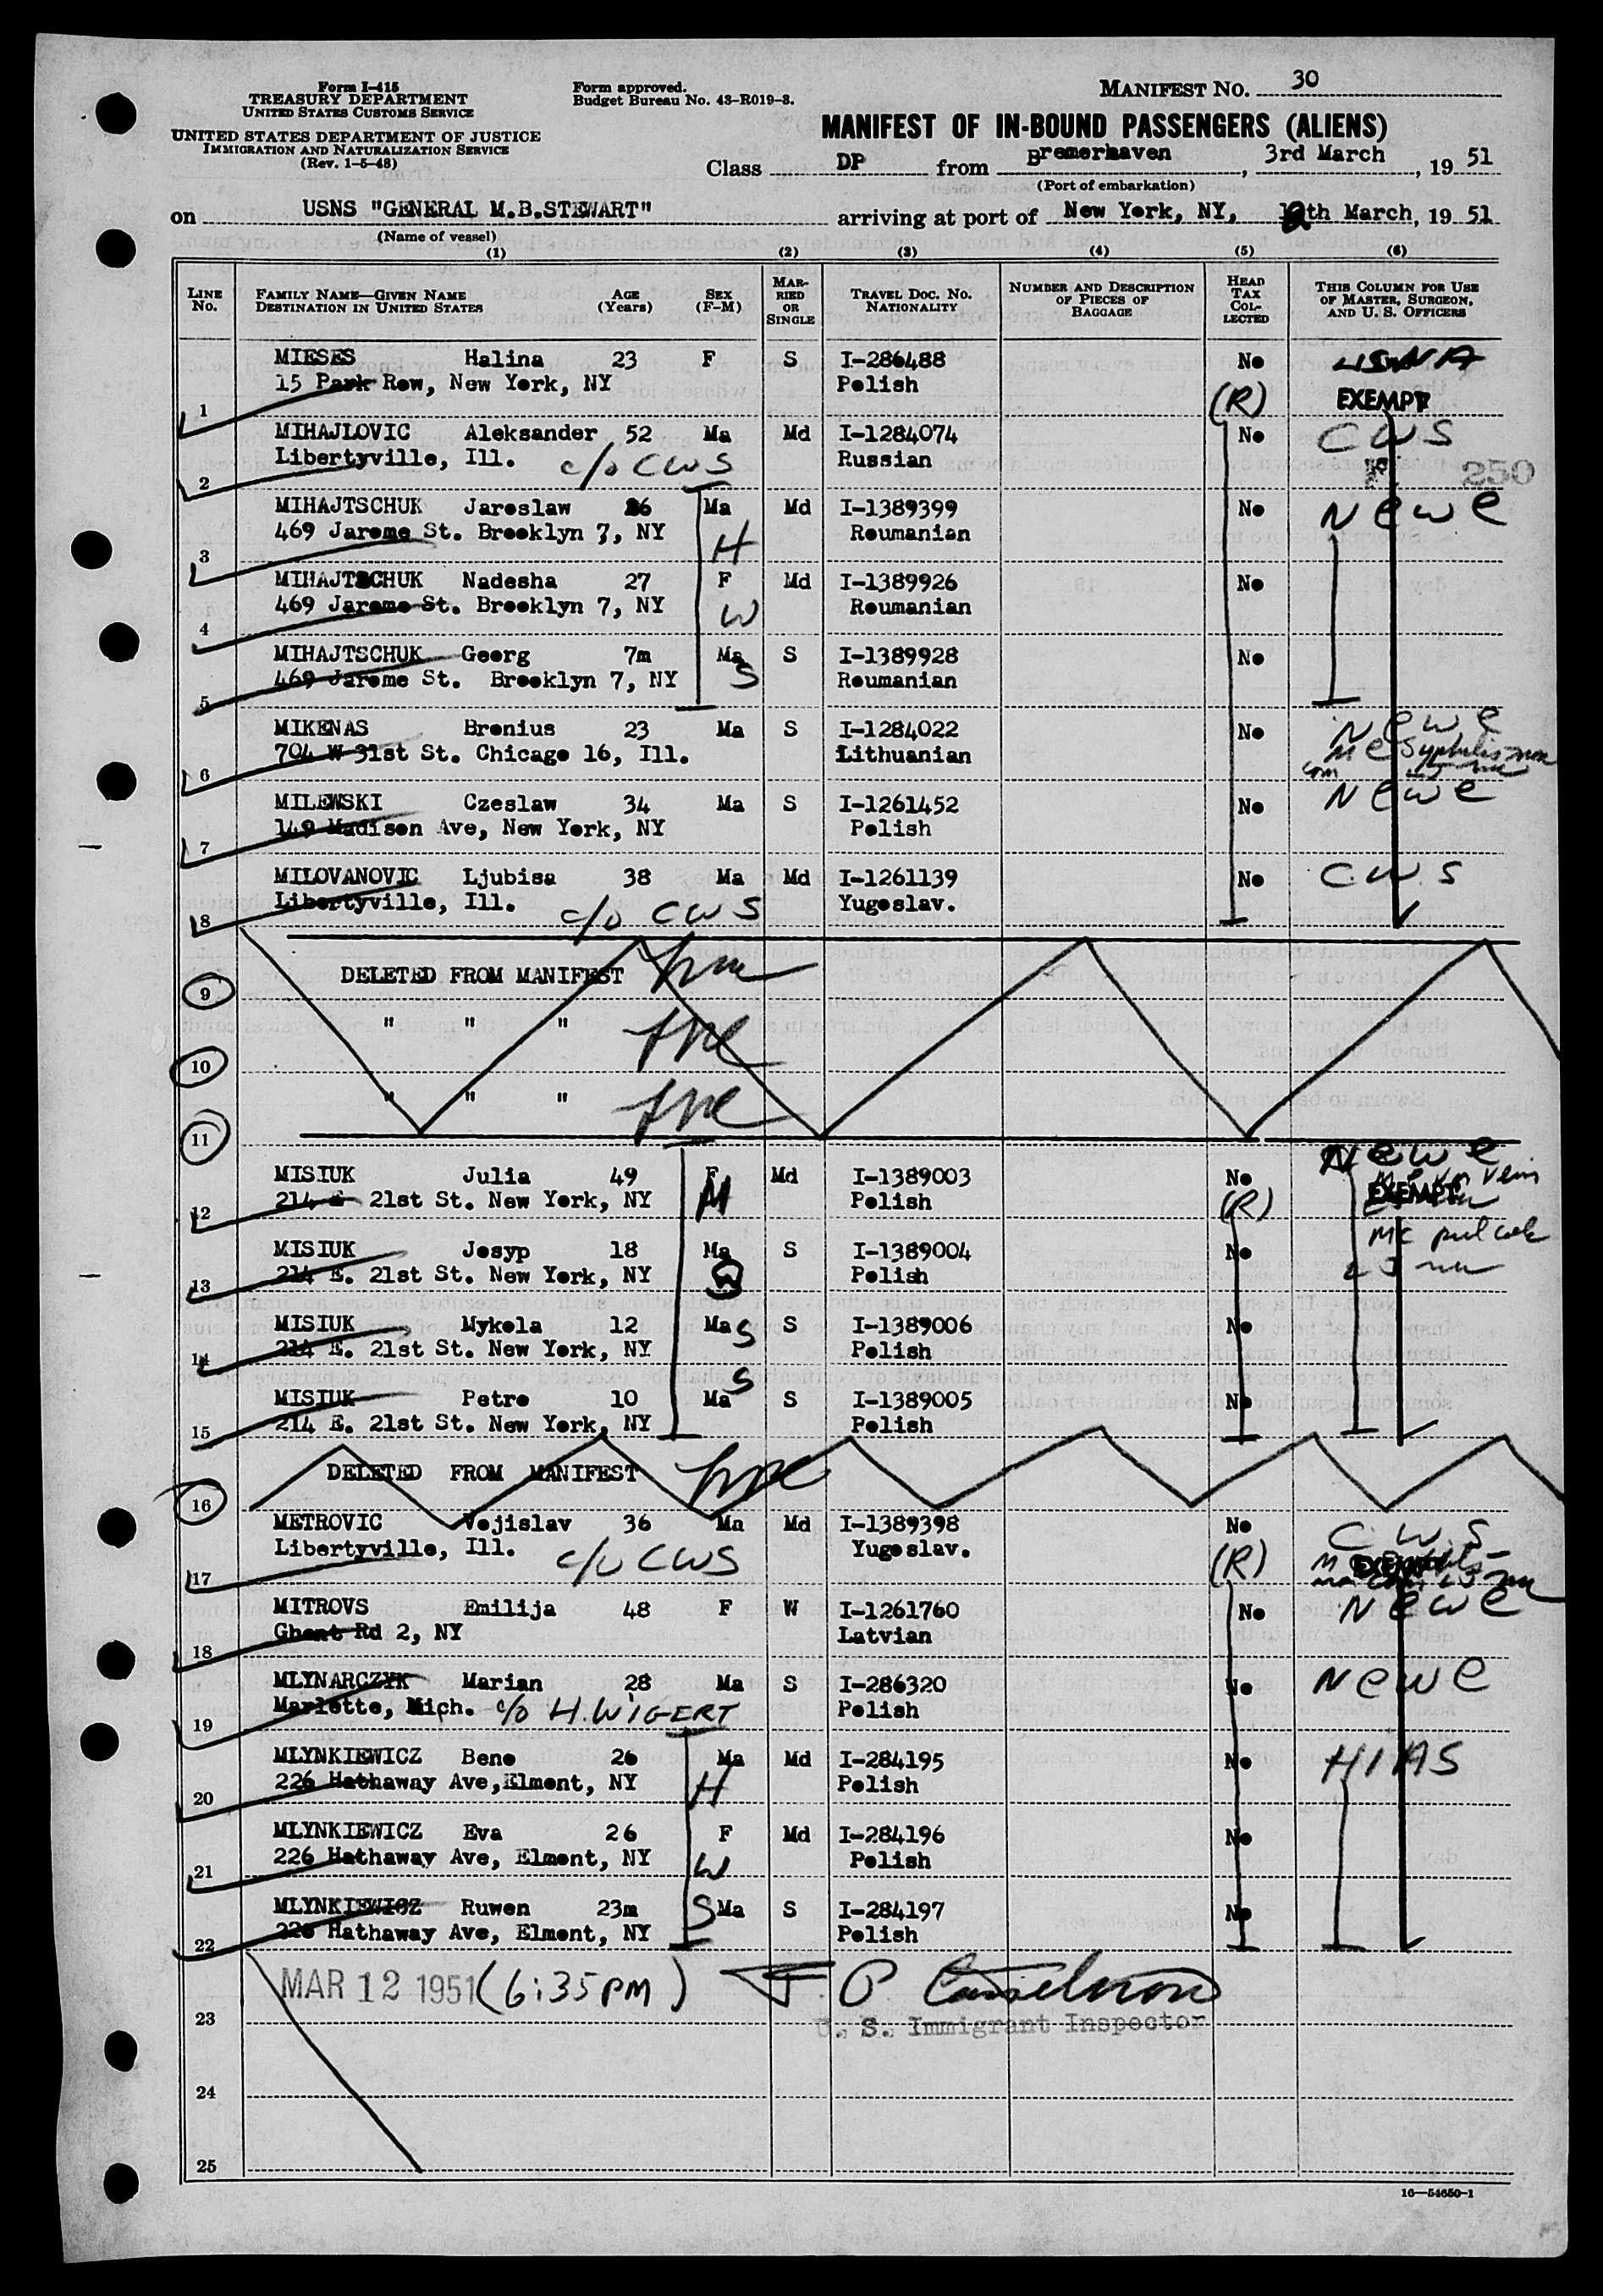 Form I-415
TREASURY DEPARTMENT
UNITED STATES CUSTOMS SERVICE
UNITED STATES DEPARTMENT OF JUSTICE
IMMIGRATION AND NATURALIZATION SERVICE
(Rev. 1-5-48)
Form approved.
Budget Bureau No. 43-R019-3.
MANIFEST NO. 30
MANIFEST OF IN-BOUND PASSENGERS (ALIENS)
Class DP from Bremerhaven, 3rd March, 19 51
(Port of embarkation)
on USNS "GENERAL M.B.STEWART" arriving at port of New York, NY, 12th March, 19 51
(Name of vessel)
(1) (2) (3) (4) (5) (6)
LINE NO. FAMILY NAME—GIVEN NAME DESTINATION IN UNITED STATES AGE (Years) SEX (F-M) MARRIED OR SINGLE TRAVEL DOC. NO. NATIONALITY NUMBER AND DESCRIPTION OF PIECES OF BAGGAGE HEAD TAX COLLECTED THIS COLUMN FOR USE OF MASTER, SURGEON, AND U. S. OFFICERS
MIESES Halina 23 F S I-286488 No USNA
15 Park Row, New York, NY Polish (R) EXEMPT
1
MIHAJLOVIC Aleksander 52 Ma Md I-1284074 No CWS
Libertyville, Ill. c/o CWS Russian 250
2
MIHAJTSCHUK Jaroslaw 26 Ma Md I-1389399 No Newe
469 Jarome St. Brooklyn 7, NY H Roumanian
3
MIHAJTSCHUK Nadesha 27 F Md I-1389926 No
469 Jarome St. Brooklyn 7, NY W Roumanian
4
MIHAJTSCHUK Georg 7m Ma S I-1389928 No
469 Jarome St. Brooklyn 7, NY S Roumanian
5
MIKENAS Bronius 23 Ma S I-1284022 No Newe
704 W 31st St. Chicago 16, Ill. Lithuanian Syphilis
6
MILEWSKI Czeslaw 34 Ma S I-1261452 No Newe
149 Madison Ave, New York, NY Polish
7
MILOVANOVIC Ljubisa 38 Ma Md I-1261139 No C.W.S
Libertyville, Ill. c/o CWS Yugoslav.
8
DELETED FROM MANIFEST
9
" " "
10
" " "
11
MISIUK Julia 49 F Md I-1389003 No Newe
214 E 21st St. New York, NY M Polish (R) EXEMPT
12
MISIUK Josyp 18 Ma S I-1389004 No
214 E. 21st St. New York, NY Polish
13
MISIUK Mykola 12 Ma S S I-1389006 No
214 E. 21st St. New York, NY Polish
14
MISIUK Petro 10 Ma S S I-1389005 No
214 E. 21st St. New York, NY Polish
15
DELETED FROM MANIFEST
16
METROVIC Vojislav 36 Ma Md I-1389398 No C.W.S
Libertyville, Ill. c/o CWS Yugoslav. (R) EXEMPT
17
MITROVS Emilija 48 F W I-1261760 No Newe
Ghent Rd 2, NY Latvian
18
MLYNARCZYK Marian 28 Ma S I-286320 No Newe
Marlette, Mich. c/o H.WIGERT Polish
19
MLYNKIEWICZ Beno 26 Ma Md I-284195 No HIAS
226 Hathaway Ave,Elmont, NY H Polish
20
MLYNKIEWICZ Eva 26 F Md I-284196 No
226 Hathaway Ave, Elmont, NY W Polish
21
MLYNKIEWICZ Ruwen 23m S Ma S I-284197 No
226 Hathaway Ave, Elmont, NY Polish
22
MAR 12 1951 (6:35PM)
U. S. Immigrant Inspector
23
24
25
16—54650-1